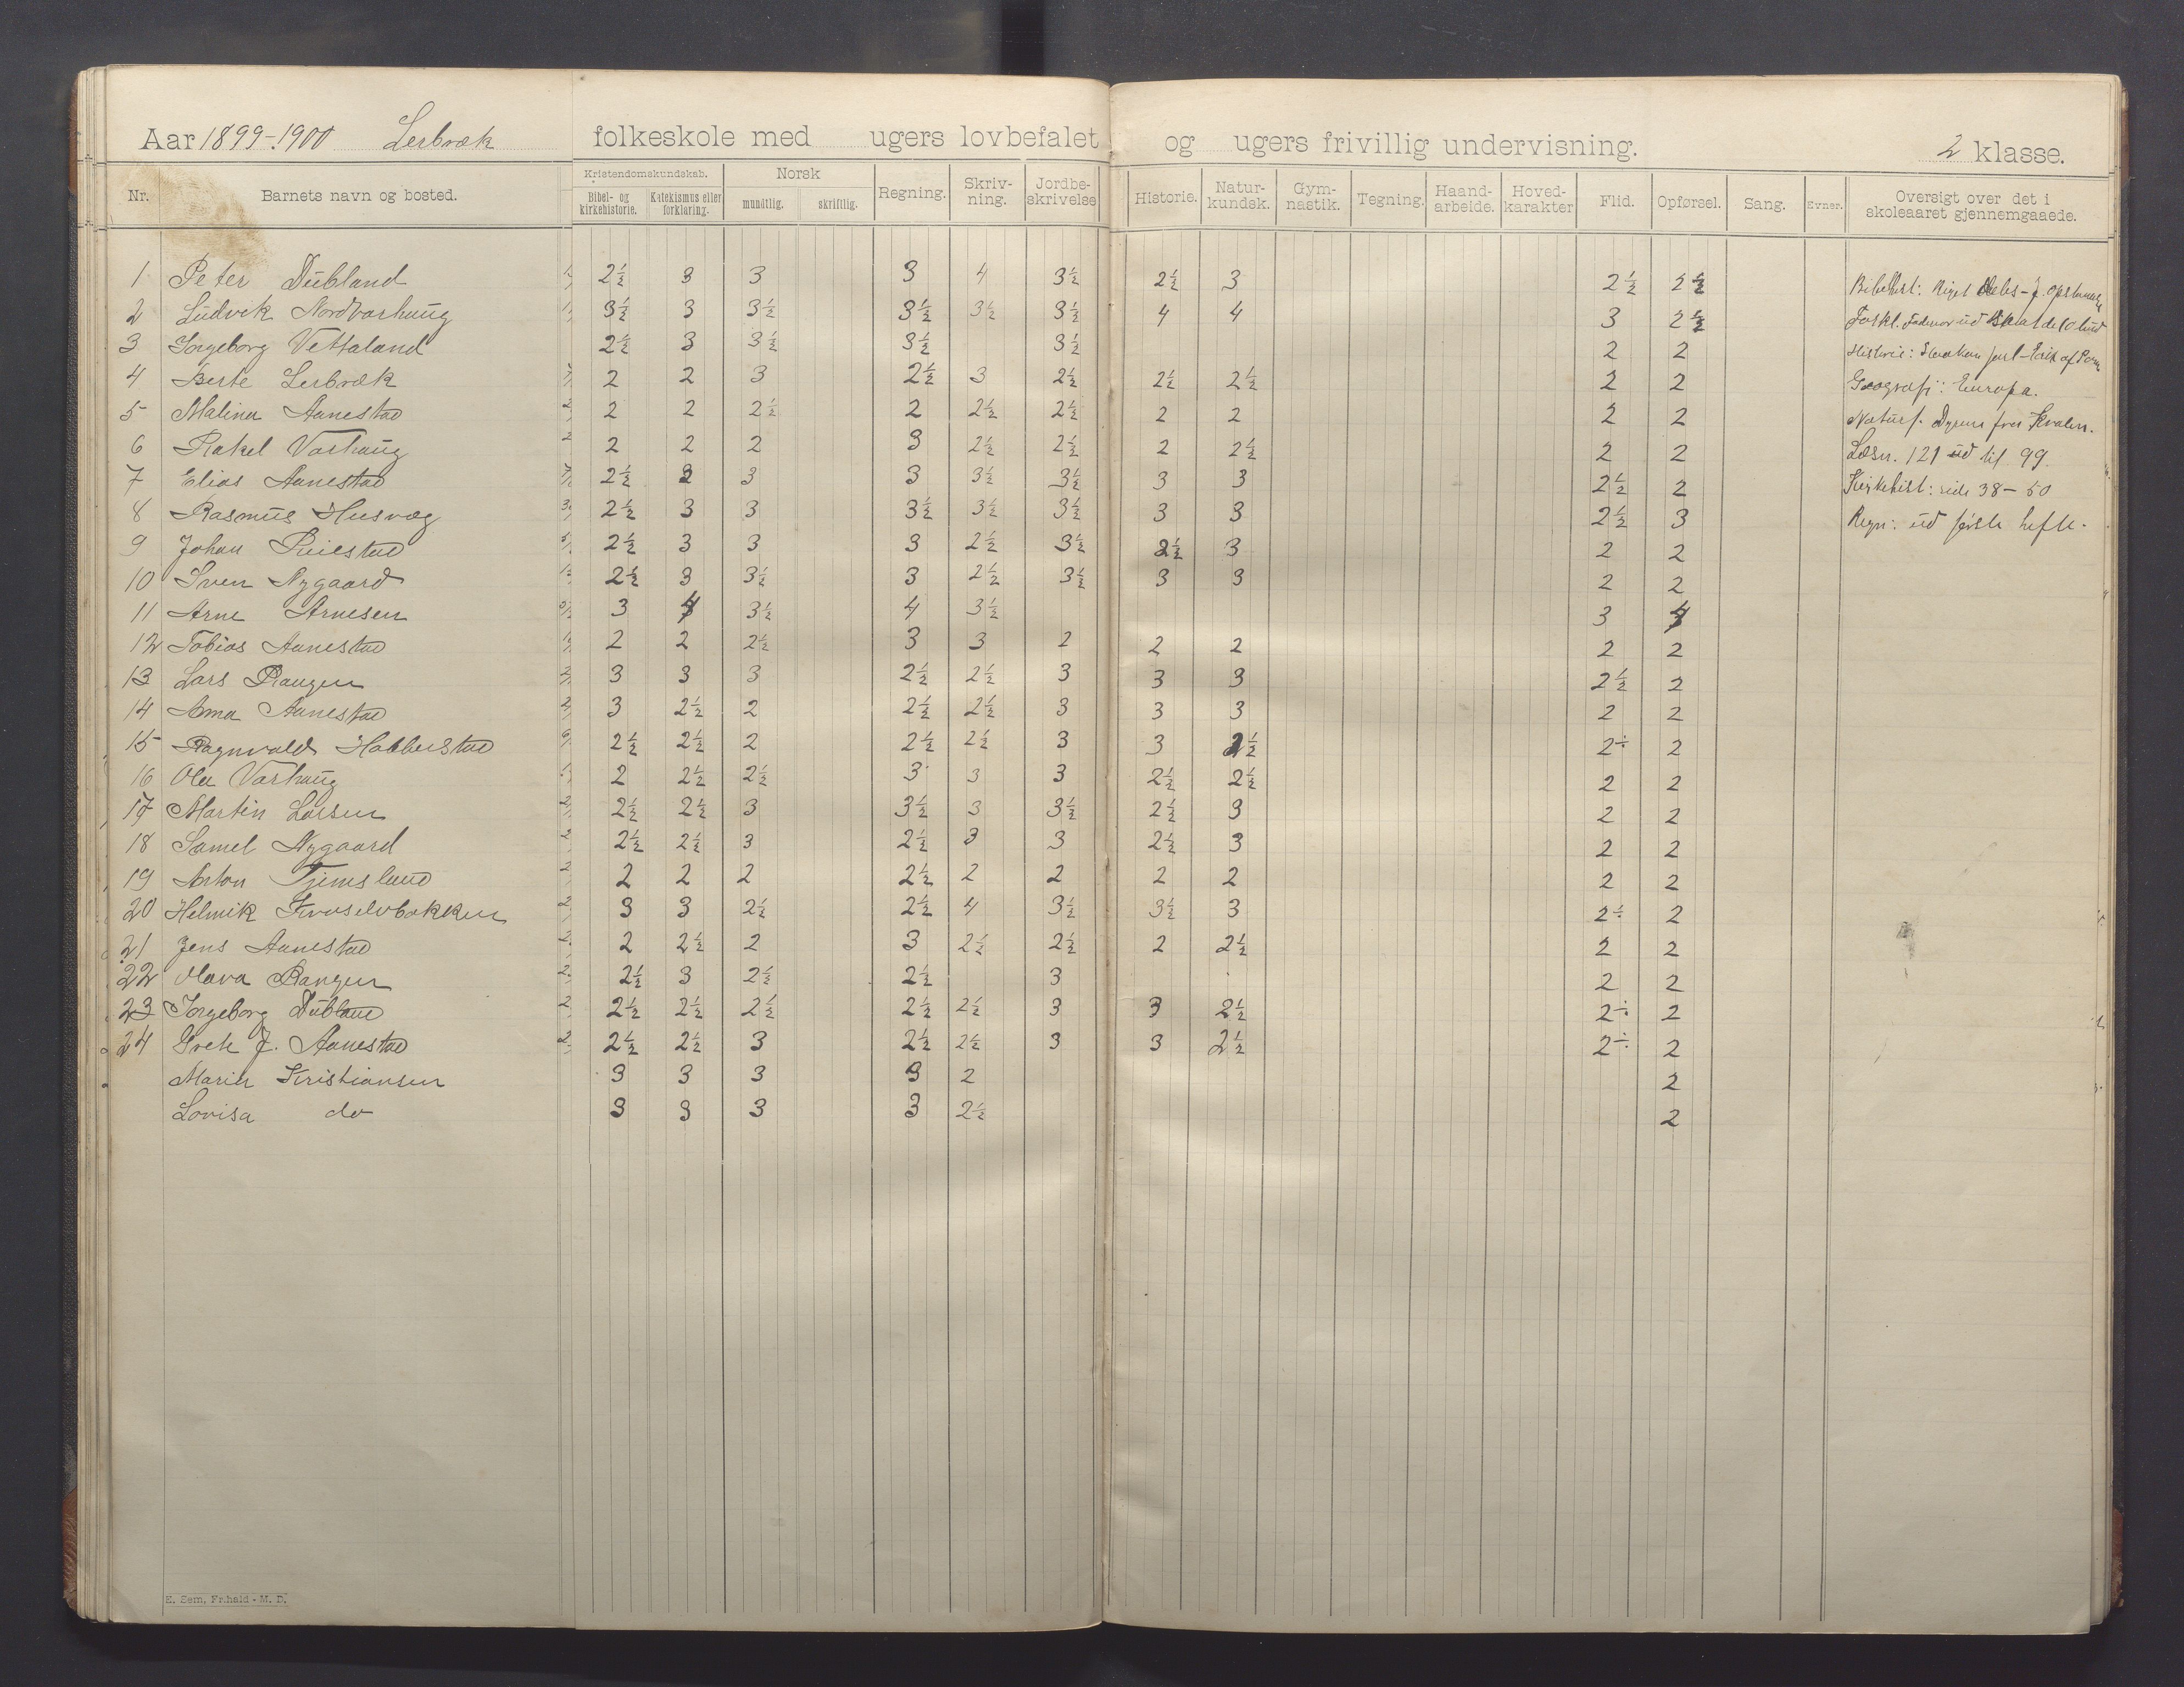 Aar 1899-1900 Lerbræk folkeskole med ugers lovbefalet og ugers frivillig undervisning. 2 klasse.
Nr. Barnets navn og bosted. Kristendomskundskab. Bibel- og kirkehistorie. Katekismus eller forklaring. Norsk mundtlig. skriftlig. Regning. Skriv-ning. Jordbe-skrivelse Historie. Natur-kundsk. Gym-nastik. Tegning. Haand-arbeide. Hoved-karakter Flid. Opførsel. Sang. Evner. Oversigt over det i skoleaaret gjennemgaaede.
1 Peter Dubland 2½ 3 3 3 4 3½ 2½ 3 2½ 2½ Bibelhist: Riget
2 Ludvik Nordvarhaug 3½ 3 3½ 3½ 3½ 3½ 4 4 3 2½ Forkl. Fadervor ud
3 Ingeborg Vettaland 2½ 3 3½ 3½ 3½ 2 2 Historie: Haakon jarl - Erik af Pom
4 Berte Lerbræk 2 2 3 2½ 3 2½ 2½ 2½ 2 2 Geografi: Europa.
5 Malina Aanestad 2 2 2½ 2 2½ 2½ 2 2 2 2 Naturf. Dyrene fra Hvalen.
6 Rakel Varhaug 2 2 2 3 2½ 2½ 2 2½ 2 2 Læsn. 121 ud til 99.
7 Elias Aanestad 2½ 3 3 3½ 3½ 3 3 2½ 2 Kirkehist: side 38-50
8 Rasmus Husvæg 2½ 3 3 3½ 3½ 3½ 3 3 2½ 3 Regn: ud første hefte.
9 Johan 2½ 3 3 3 2½ 3½ 2½ 3 2 2
10 Sven Nygaard 2½ 3 3½ 3 2½ 3½ 3 3 2 2
11 Arne Arnesen 3 4 3½ 4 3½ 3 4
12 Tobias Aanestad 2 2 2½ 3 3 2 2 2 2 2
13 Lars Rangen 3 3 3 2½ 2½ 3 3 3 2½ 2
14 Anna Aanestad 3 2½ 2 2½ 2½ 3 3 3 2 2
15 Ragnvald Habberstad 2½ 2½ 2 2½ 2½ 3 3 2½ 2÷ 2
16 Ola Varhaug 2 2½ 2½ 3 3 3 2½ 2½ 2 2
17 Martin Larsen 2½ 2½ 3 3½ 3 3½ 2½ 3 2 2
18 Samel Nygaard 2½ 2½ 3 2½ 3 3 2½ 3 2 2
19 Anton Tjemsland 2 2 2 2½ 2 2 2 2 2 2
20 Helmik 3 3 2½ 2½ 4 3½ 3½ 3 2÷ 2
21 Jens Aanestad 2 2½ 2 3 2½ 2½ 2 2½ 2 2
22 Mava Rangen 2½ 3 2½ 2½ 3 2 2
23 Ingeborg Dubland 2½ 2½ 2½ 2½ 2½ 3 3 2½ 2÷ 2
24 Grete J. Aanestad 2½ 2½ 3 2½ 2½ 3 3 2½ 2÷ 2
Marie Kristiansen 3 3 3 3 2 2
Lovisa do 3 3 3 3 2½ 2
E. Sem, Fr.hald - M. D.